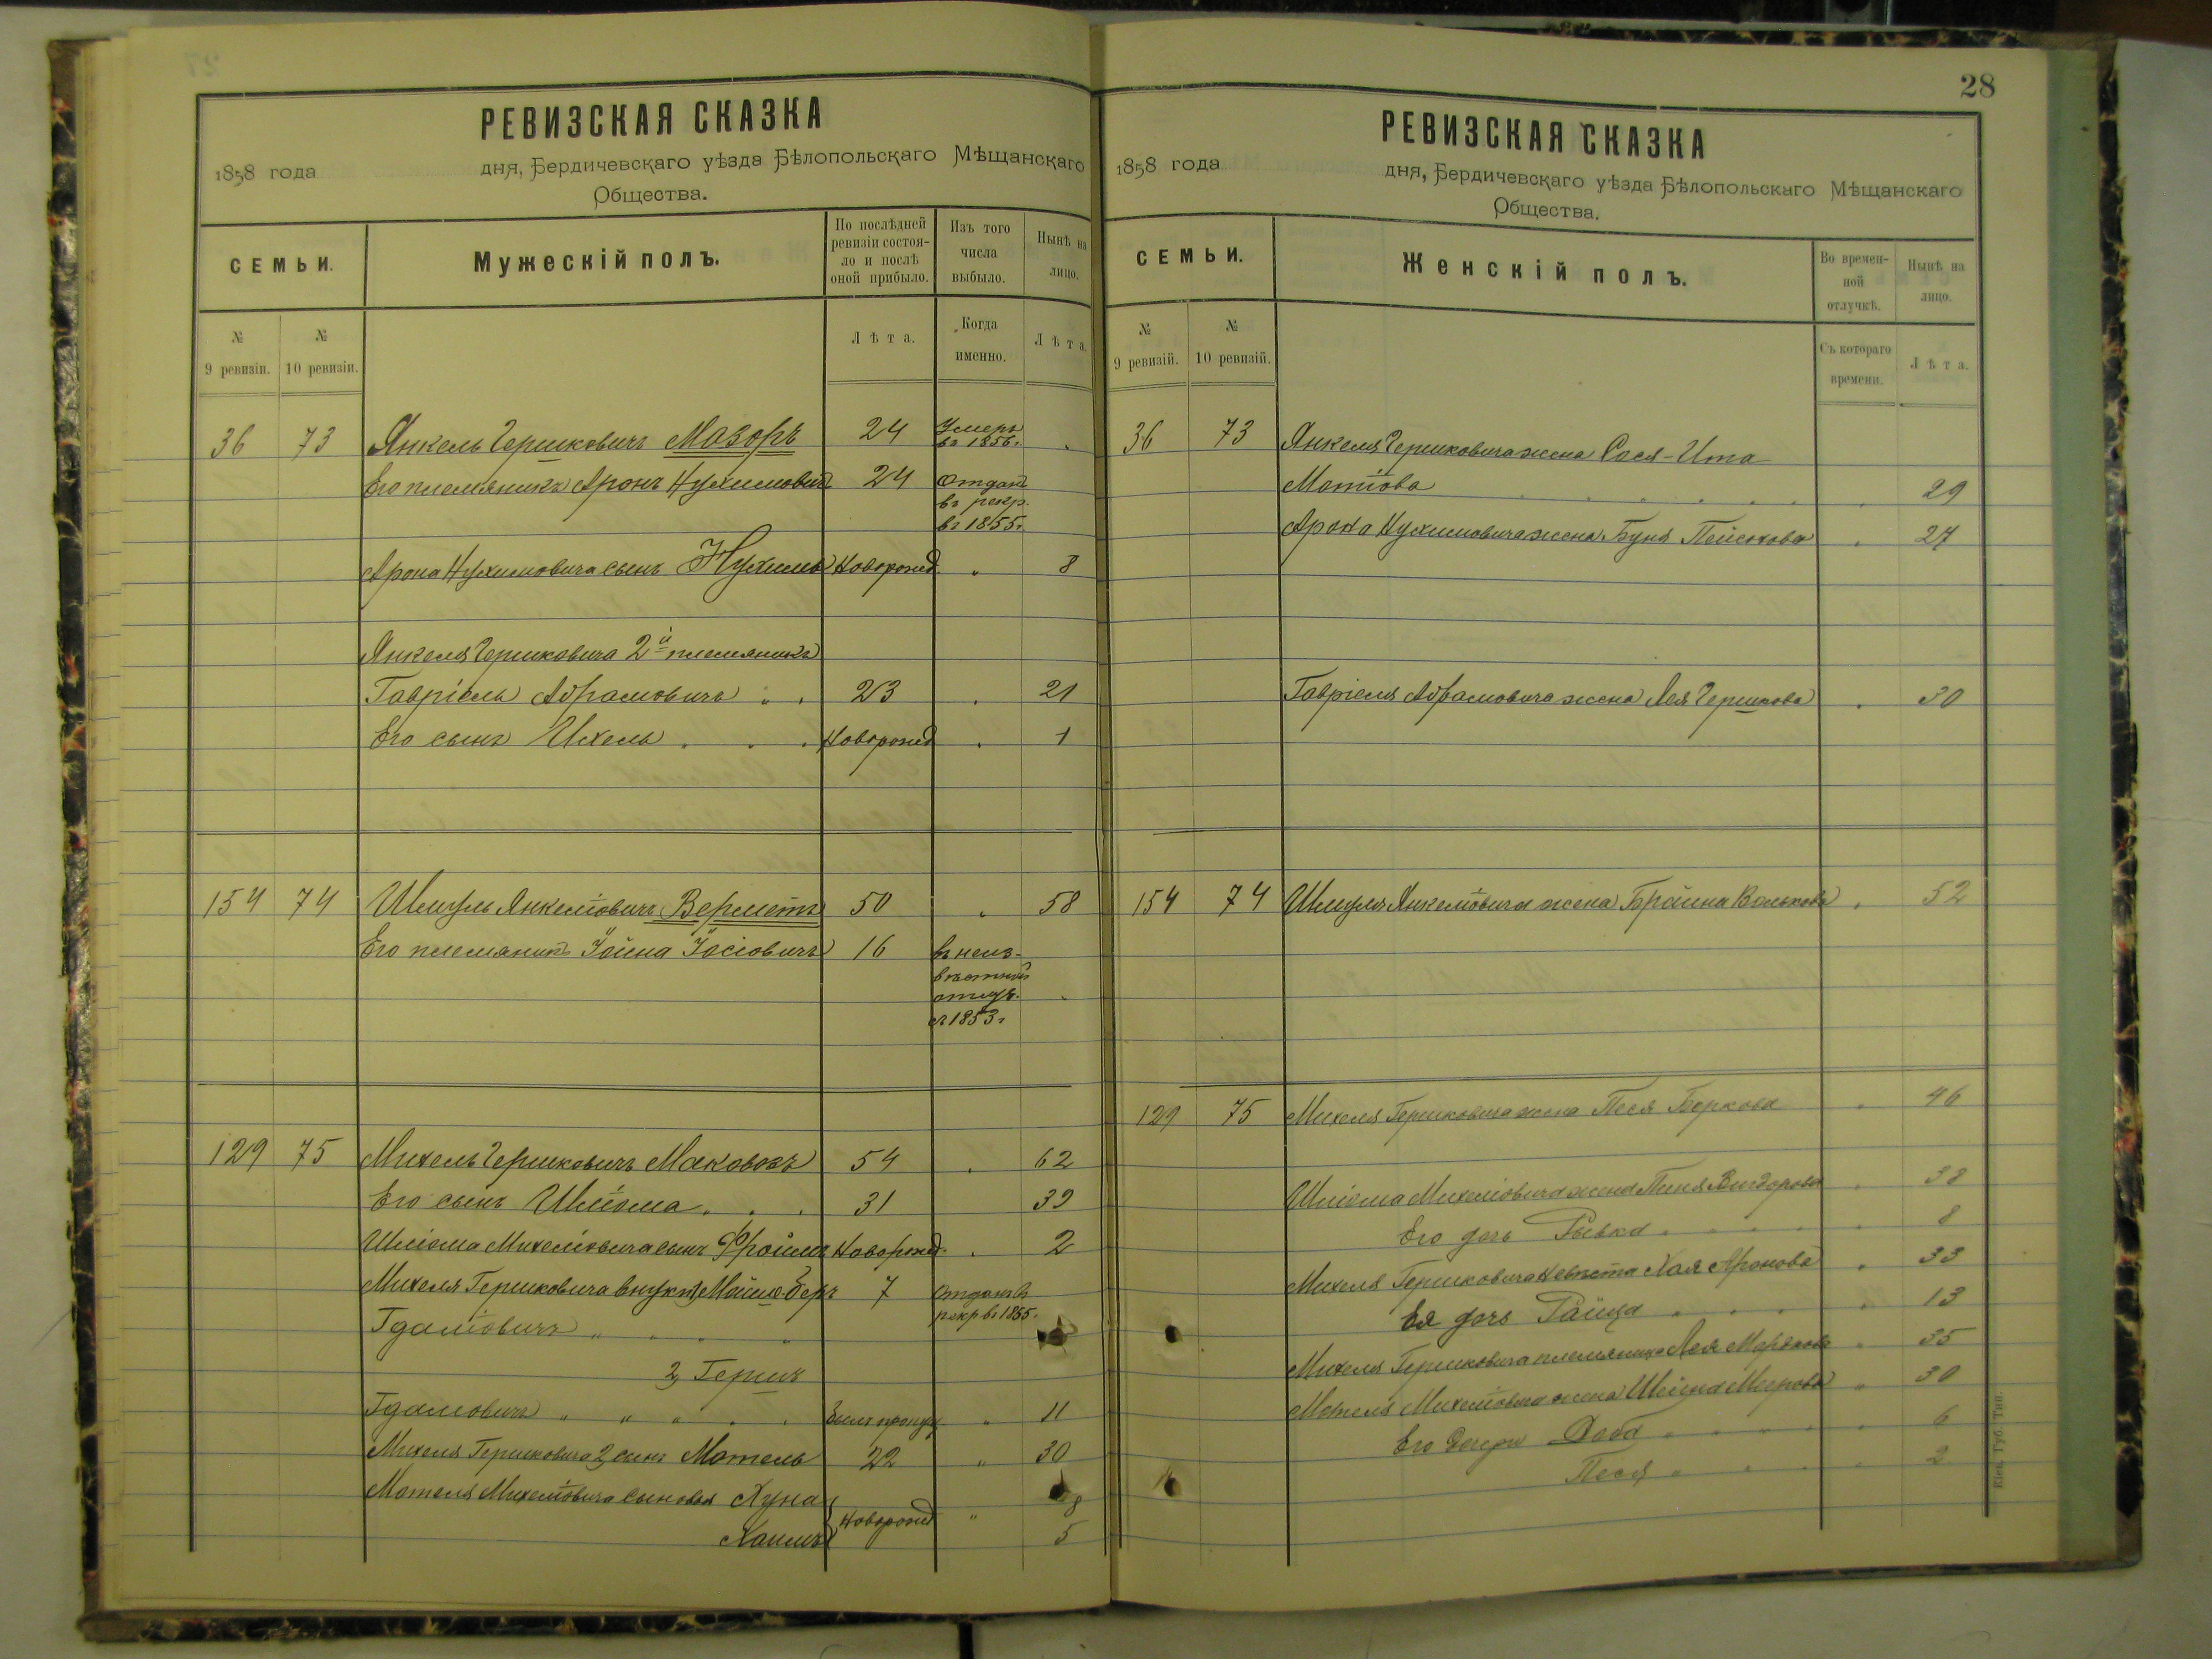 РЕВИЗСКАЯ СКАЗКА
1858 года дня, Бердичевскаго уѣзда Бѣлопольскаго Мѣщанскаго
Общества.
СЕМЬИ. Мужескій полъ. По послѣдней ревизіи состояло и послѣ оной прибыло. Изъ того числа выбыло. Нынѣ на лицо.
№ 9 ревизіи. № 10 ревизіи. Лѣта. Когда именно. Лѣта.
36 73 Янкель Гершковичъ Мазоръ 24 Умеръ въ 1856.
Его племяникъ Аронъ Нухимовичъ 24 отданъ
въ рекр.
въ 1855г.
Арона Нухимовича сынъ Нухимъ Новорожд. " 8
Янкеля Гершковича 2й племяникъ
Гавріель Абрамовичъ 23 21
Его сынъ Ихель Новорожд 1
154 74 Шмуль Янкеліовичъ Верметъ 50 " 58
Его племяникъ Іойна Іосіовичъ 16 въ неиз-
вѣстной
отлуч.
съ 1853г
129 75 Михель Гершковичъ Маковозъ 54 62
Его сынъ Шліома 31 39
Шліома Михеліовича сынъ Фроимъ Новорожд. 2
Михеля Гершковича внуки 1, Мойше-Беръ 7 отданъ въ
Гдаліовичъ рекр въ 1855.
2, Гершъ
Гдаліовичъ " " " Былъ пропущ " 11
Михеля Гершковича 2, сынъ Мотель 22 " 30
Мотеля Михеліовича сыновья Хуна 8
Новорожд "
Хаимъ 5
28
РЕВИЗСКАЯ СКАЗКА
1858 года дня, Бердичевскаго уѣзда Бѣлопольскаго Мѣщанскаго
Общества.
СЕМЬИ. Женскій полъ. Во временной отлучкѣ. Нынѣ на лицо.
№ 9 ревизій. № 10 ревизій. Съ котораго времени. Лѣта.
36 73 Янкеля Гершковича жена Сося-Ита
Мотіова 29
Арона Нухимовича жена Буня Пейсохова 27
Гавріеля Абрамовича жена Лея Гершкова 30
154 74 Шмуля Янкеліовича жена Брайна Волькова 52
129 75 Михеля Гершковича жена Песя Беркова 46
Шліома Михеліовича жена Пиня 38
Его дочь Рывка 8
Михеля Гершковича невѣста Хая Аронова 33
Ея дочь Райца 13
Михеля Гершковича племяница Лея 35
Мотеля Михеліовича жена Шейна Меерова 30
Его дочери Доба 6
Песя 2
Кіев. Губ. Тип.